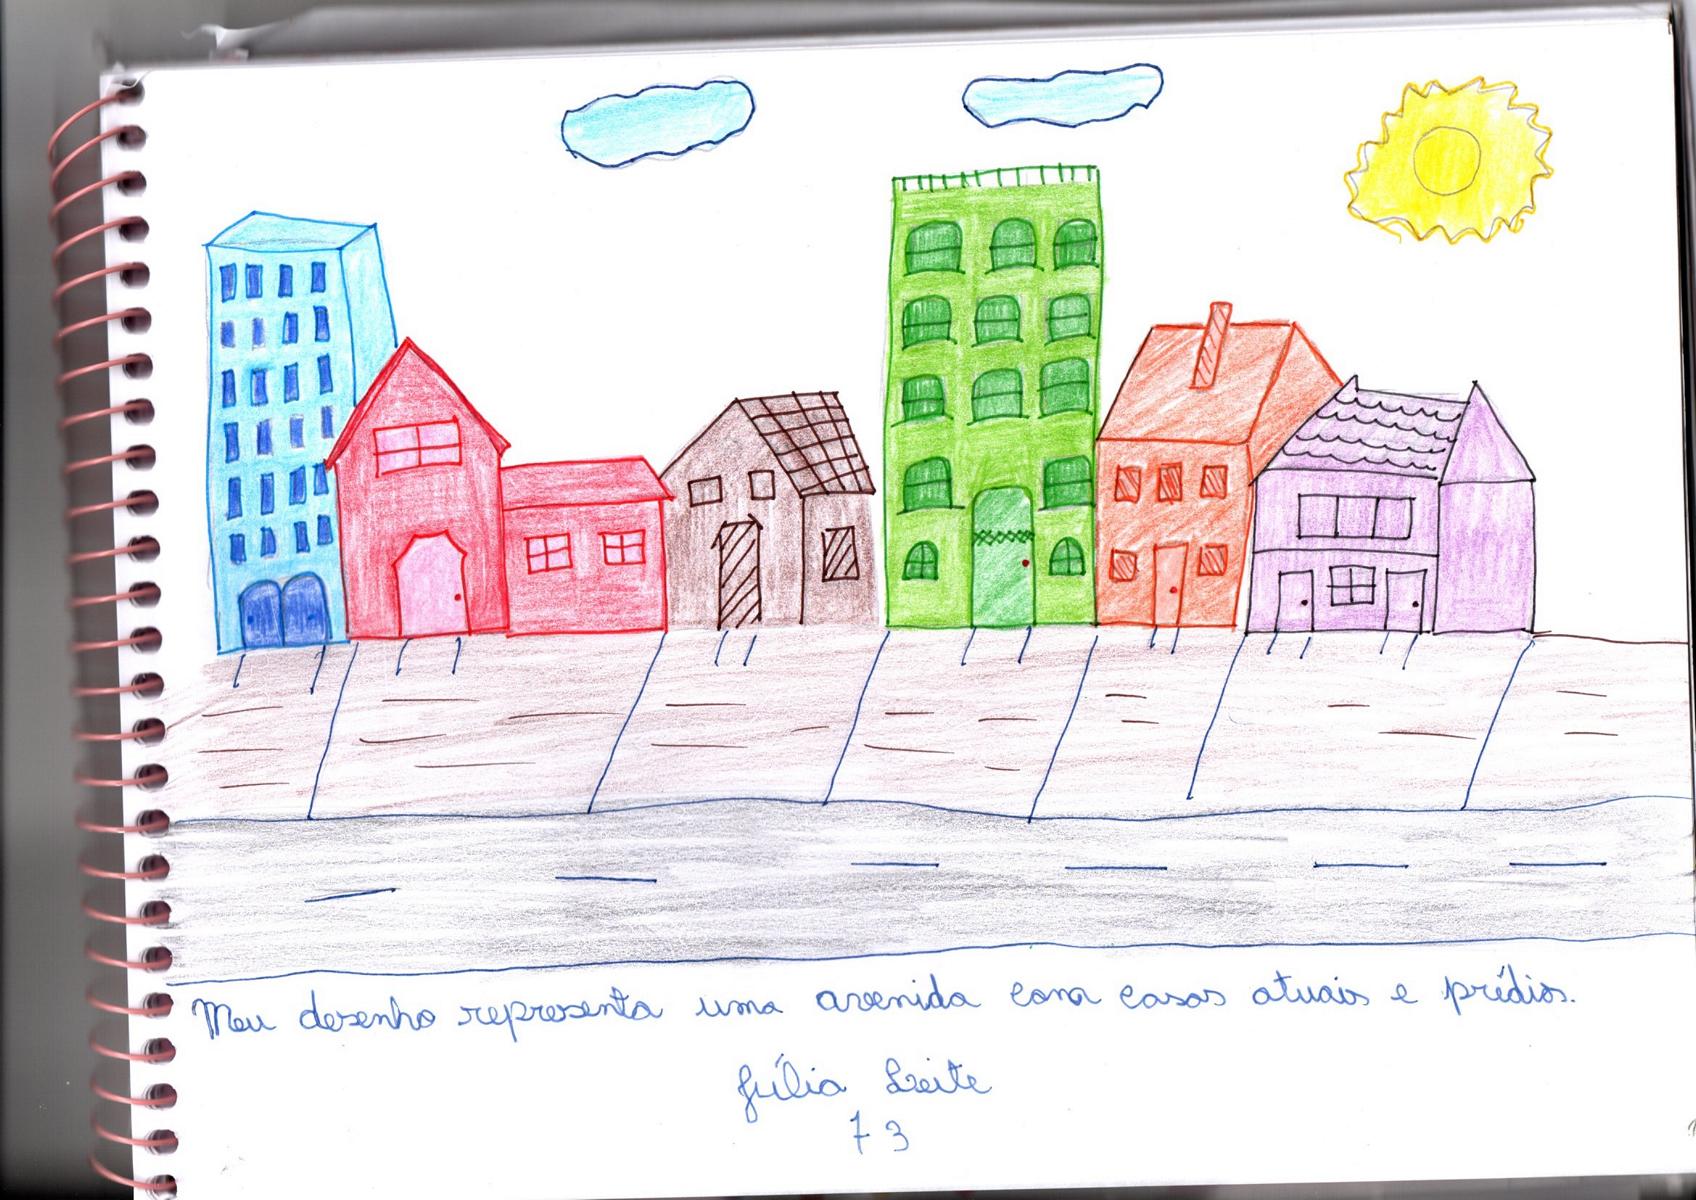 Meu desenho representa uma avenida com casas atuais e prédios.
Júlia Leite
73